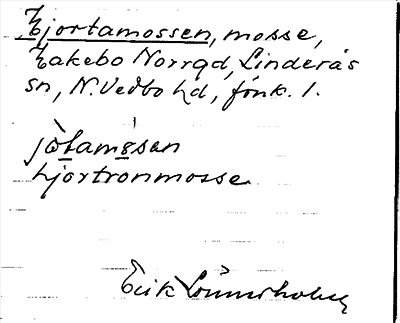 Hjortamossen, mosse,
Eakebo Norrgd, Linderås
sn, N. Vedbo hd, Jönk. l.
jo̱tamo̱sen
hjortronmosse.
Erik